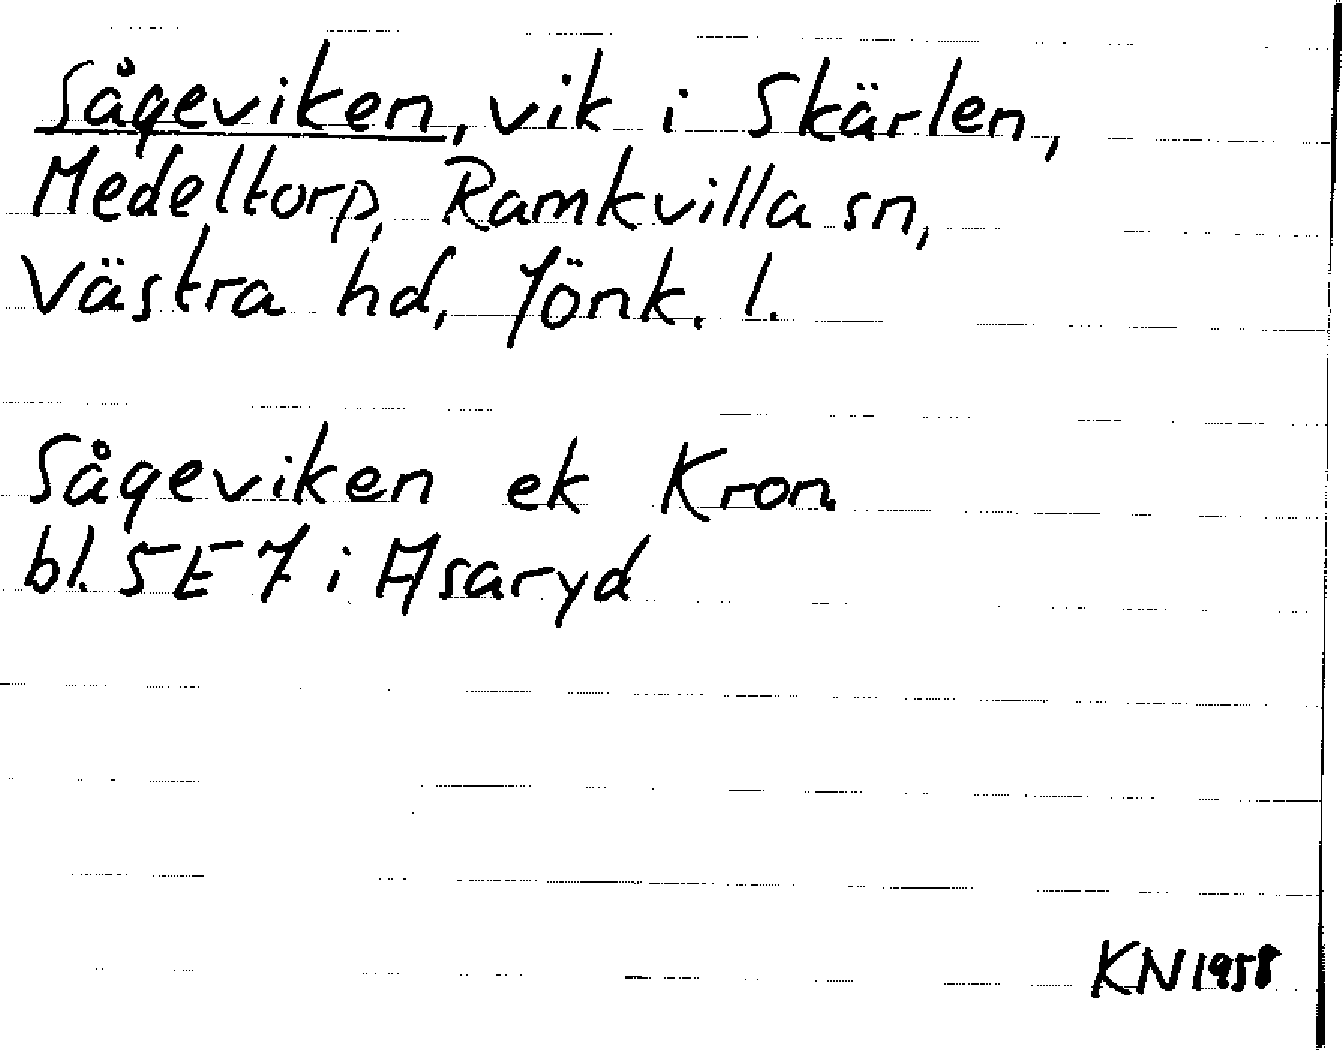 Sågeviken, vik i Skärlen,
Medeltorp, Ramkvilla sn,
Västra hd, Jönk. l.
Sågeviken ek Kron
bl. 5E7 i Asaryd
KN 1958